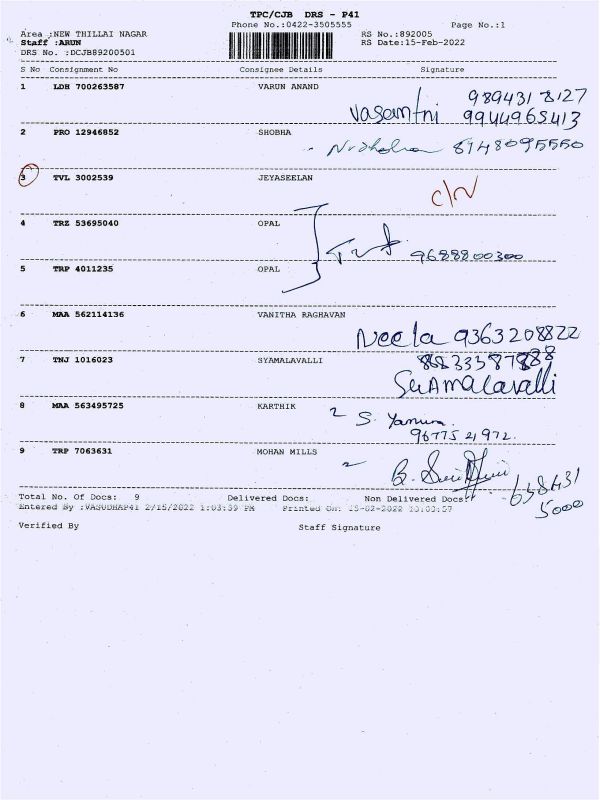 TPC/CJB DRS - P41
Phone No.:0422-3505555 Page No.:1
Area :NEW THILLAI NAGAR RS No.:892005
Staff :ARUN RS Date:15-Feb-2022
DRS No. :DCJB89200501
S No Consignment No Consignee Details Signature
1 LDH 700263587 VARUN ANAND
9894318127
Vasantni 9944965413
2 PRO 12946852 SHOBHA
8148095550
3 TVL 3002539 JEYASEELAN
C/N
4 TRZ 53695040 OPAL
9688800300
5 TRP 4011235 OPAL
6 MAA 562114136 VANITHA RAGHAVAN
Neela 9363208822
7 TNJ 1016023 SYAMALAVALLI
8 MAA 563495725 KARTHIK
S. Yamuna.
96775 21972.
9 TRP 7063631 MOHAN MILLS
638431
5000
Total No. Of Docs: 9 Delivered Docs: Non Delivered Docs:
Entered By :VASUDHAP41 2/15/2022 1:03:39 PM Printed On: 15-02-2022 13:03:57
Verified By Staff Signature